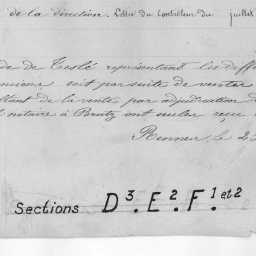 de la direction. Lettre du Contrôleur du juillet
de de Teslé représentant les diff
soit par suite de ventes
tant de la vente par adjudication d
notaire à Bruz ont seules reçu
Rennes, le 2
Sections D³. E². F.¹ et 2